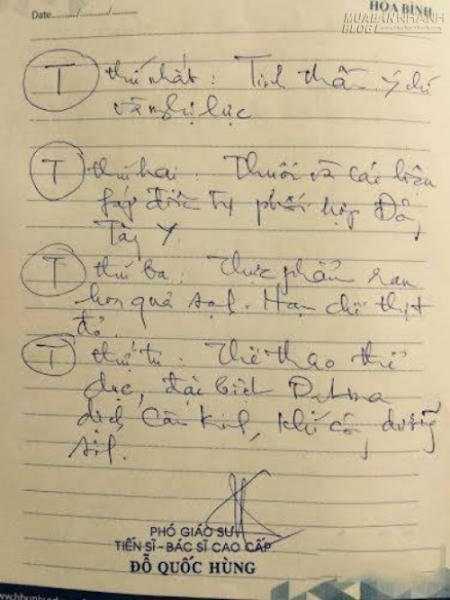 Date
HÒA BÌNH
MUABANNHANH
BLOG
T thứ nhất : Tinh thần ý chí
và nghị lực
T thứ hai : Thuốc và các biện
pháp điều trị phối hợp Đông
Tây Y.
T thứ ba : Thực phẩm rau
hoa quả sạch. Hạn chế thịt
đỏ.
T thứ tư : Thể thao thể
dục, đặc biệt
dịch Cân kinh, khí công dưỡng
sinh.
PHÓ GIÁO SƯ
TIẾN SĨ - BÁC SĨ CAO CẤP
ĐỖ QUỐC HÙNG